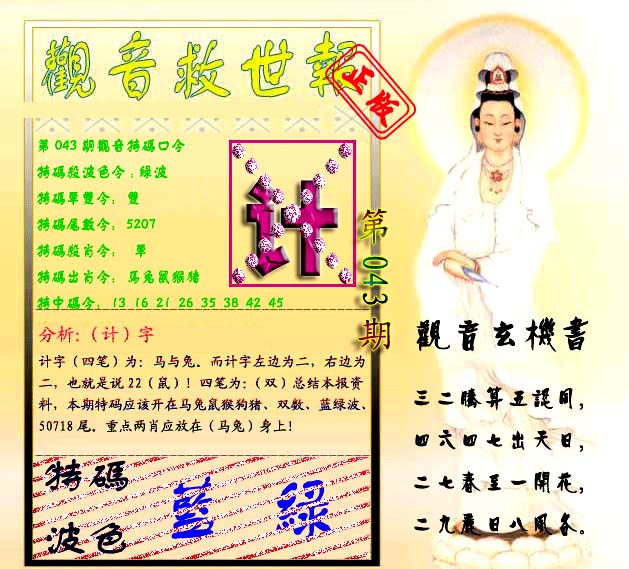 觀音救世報
正版
第 043 期觀音特碼口令
特碼殺波色令：綠波
特碼單雙令： 雙
特碼尾數令： 5207
特碼殺肖令： 單
特碼出肖令： 馬兔鼠猴豬
特中碼令： 13 16 21 26 35 38 42 45
计
第 043 期
分析:（计）字
计字（四笔）为：马与兔。而计字左边为二，右边为
二，也就是说 22（鼠）！四笔为:（双）总结本报资
料，本期特码应该开在马兔鼠猴狗猪、双数、蓝绿波、
50718 尾。重点两肖应放在（马兔）身上!
特碼
波色
藍 綠
觀音玄機書
三二勝算五認同，
四六四七出天日，
二七春至一開花，
二九晨日八風冬。